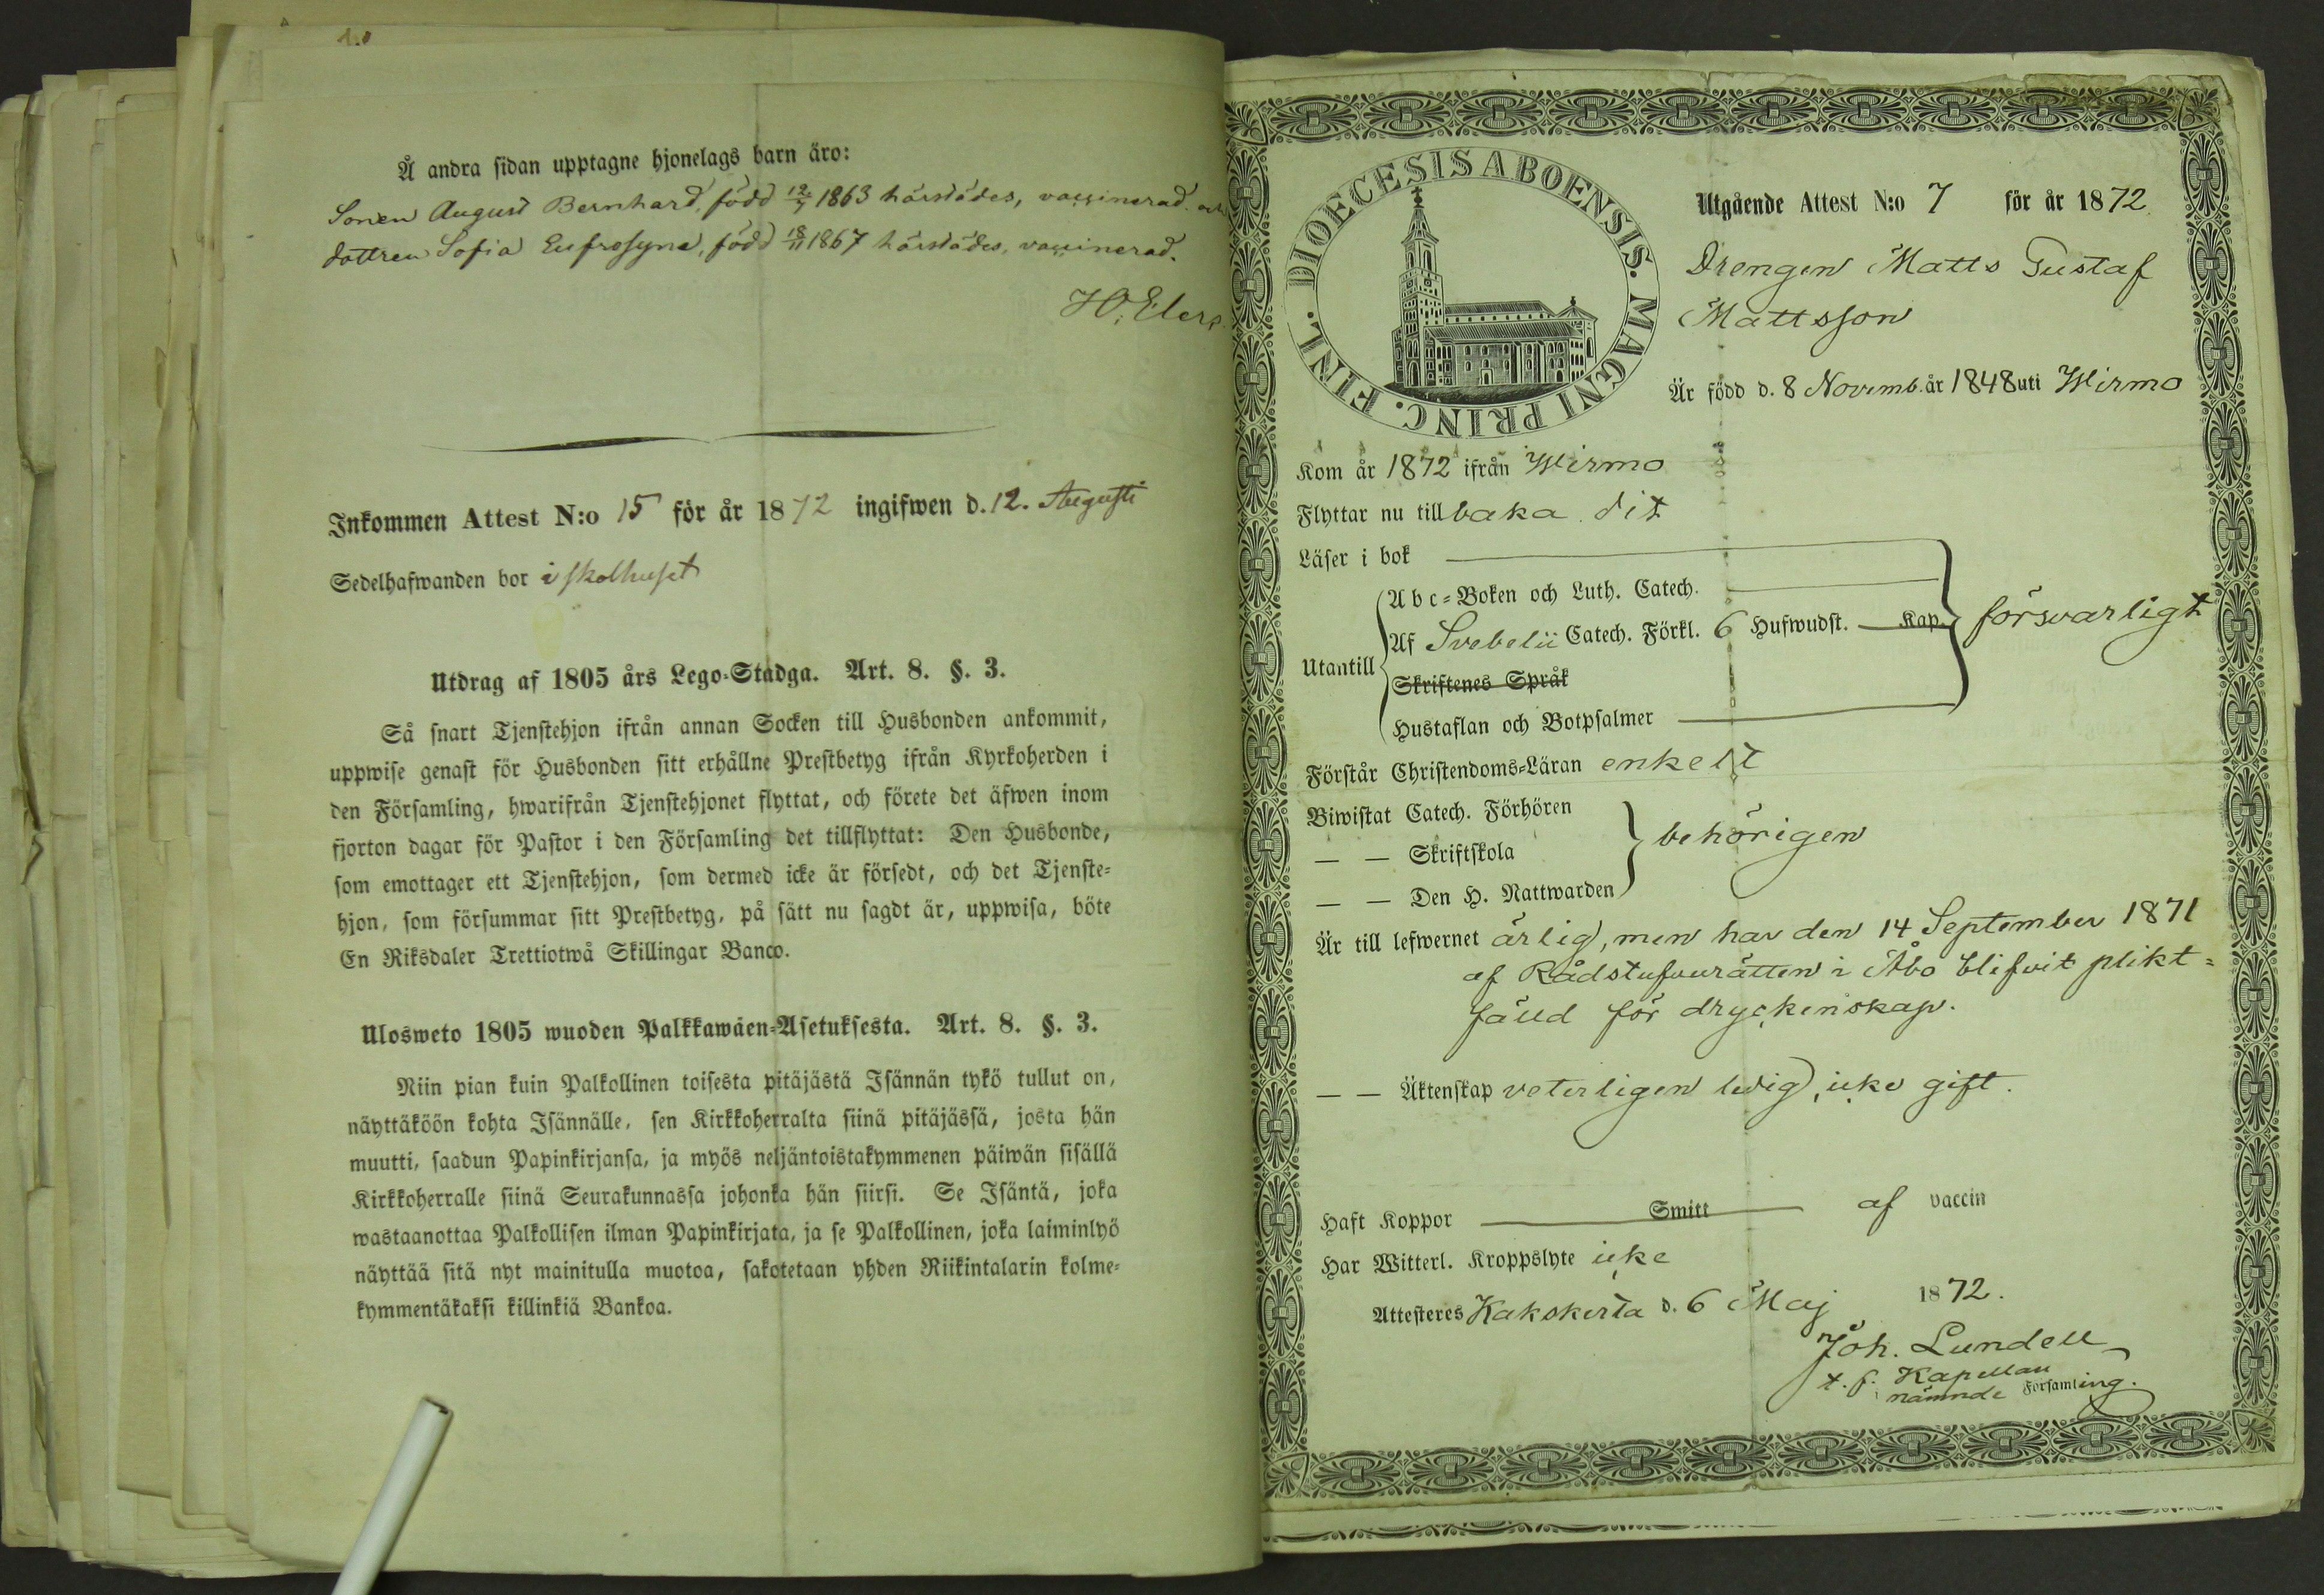 Å andra sidan upptagne hjonelags barn äro:
Sonen August Bernhard, född 12/7 1863 härstädes, vaccinerad. och
dottren Sofia Eufrosyne, född 18/11 1867 härstädes, vaccinerad.
Inkommen Attest N:o 15 för år 1872 ingifwen d. 12. Augusti
Sedelhafwanden bor i skolhuset
Utdrag af 1805 års Lego-Stadga. Art. 8. §. 3.
Så snart Tjenstehjon ifrån annan Socken till Husbonden ankommit,
uppwise genast för Husbonden sitt erhållne Prestbetyg ifrån Kyrkoherden i
den Församling, hwarifrån Tjenstehjonet flyttat, och förete det äfwen inom
fjorton dagar för Pastor i den Församling det tillflyttat: Den Husbonde,
som emottager ett Tjenstehjon, som dermed icke är försedt, och det Tjenste-
hjon, som försummar sitt Prestbetyg, på sätt nu sagdt är, uppwisa, böte
En Riksdaler Trettiotwå Skillingar Banco.
Ulosweto 1805 wuoden Palkkawäen-Asetuksesta. Art. 8. §. 3.
Niin pian kuin Palkollinen toisesta pitäjästä Isännän tykö tullut on,
näyttäköön kohta Isännälle, sen Kirkkoherralta siinä pitäjässä, josta hän
muutti, saadun Papinkirjansa, ja myös neljäntoistakymmenen päiwän sisällä
Kirkkoherralle siinä Seurakunnassa johonka hän siirsi. Se Isäntä, joka
wastaanottaa Palkollisen ilman Papinkirjata, ja se Palkollinen, joka laiminlyö
näyttää sitä nyt mainitulla muotoa, sakotetaan yhden Riikintalarin kolme-
kymmentäkaksi killinkiä Bankoa.
DIOECESIS ABOENSIS. MAGNI PRINC. FINL.
Utgående Attest N:o 7 för år 1872
Drengen Matts Gustaf
Mattsson
Är född d. 8 Novemb. år 1848 uti Wirmo
Kom år 1872 ifrån Wirmo
Flyttar nu tillbaka dit
Läser i bok
Abc-Boken och Luth. Catech.
Utantill Af Svebelii Catech. Förkl. 6 Hufwudst. Kap. försvarligt
Skriftenes Språk
Hustaflan och Botpsalmer
Förstår Christendoms-Läran enkelt
Biwistat Catech. Förhören
— — Skriftskola behörigen
— — Den H. Nattwarden
Är till lefwernet ärlig, men har den 14 September 1871
af Rådstufvurätten i Åbo blifvit plikt-
fälld för dryckenskap.
— — Äktenskap veterligen ledig, icke gift.
Haft Koppor Smitt af vaccin
Har Witterl. Kroppslyte icke
Attesteres Kakskerta d. 6 Maj 1872.
Joh. Lundell
t. f. Kapellan
i nämnde Församling.